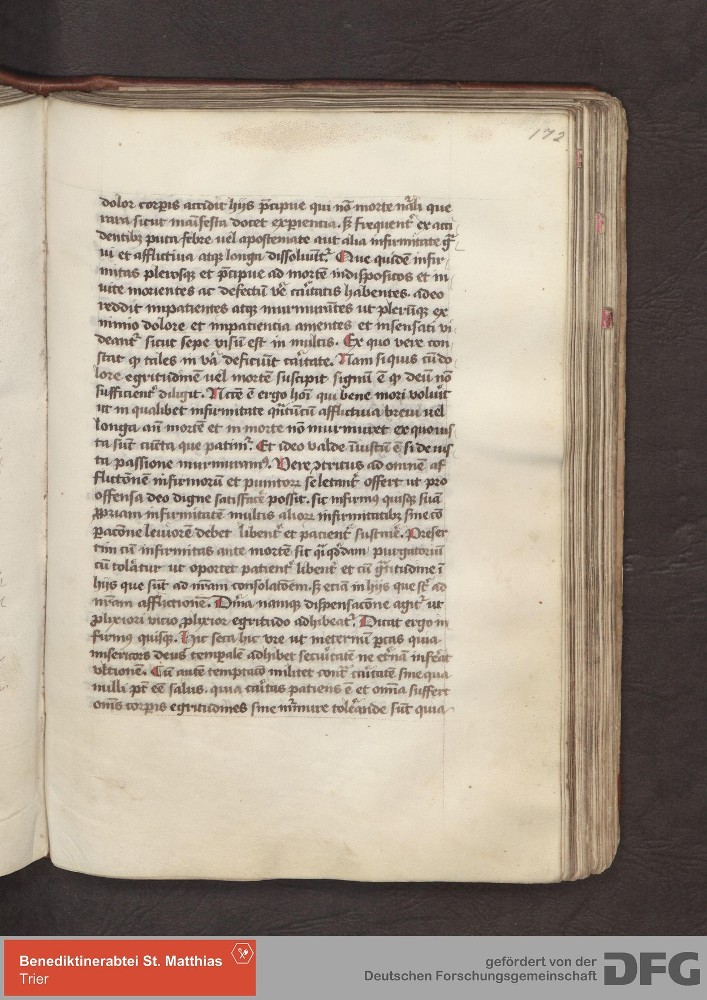 172
dolor corpis accidit hijs p̄cipue qui nō morte nāli que
rara sicut maīfesta docet expientia. sꝫ frequent᷑ ex acci
dentibꝫ puta febre uel apostemate aut alia infirmitate gͣ
ui et afflictiua atqꝫ longa dissoluūt᷑. Que quidē infir
mitas plerosqꝫ et p̄cipue ad mortē indispositos et in
uite morientes ac defectū vē caͬitatis habentes. adeo
reddit impatientes atqꝫ murmurātes ut plerūqꝫ ex
nimio dolore et impatientia amentes et insensati vi
deant᷑ sicut sepe visū est in multis. Ex quo vere con
stat ꝙ tales in vͣa deficiūt caͬitate. Nam si quis cū do
lore egritudinē uel mortē suscipit signū ē ꝙ deū nō
sufficient᷑ diligit. Nccē ē ergo hoī qui bene mori voluͥt
ut in qualibet infirmitate qͣntūcū afflictiua breui uel
longa an̄ mortē et in morte nō murmuret ex quo ius
ta sūt cūcta que patim᷑. Et ideo valde īiustū ē si de ius
ta passione murmuram᷒. Vere ꝯtritus ad omnē af
flictōnē infirmorū et punitorū se letant᷑ offert ut pro
offensa deo digne satisfacē possit. sic infirm᷒ quisqꝫ suā
ꝓpriam infirmitatē multis alioꝝ infirmitatibꝫ sine cō
pacōne leuiorē debet libent᷑ et pacient᷑ sustinē. Preser
tim cū infirmitas ante mortē sit qͣi qͦddam purgatoriū
cū tolāt᷑ ut oportet patient᷑ libent᷑ et cū gͣtitudine ī
hijs que sūt ad nr̄am consolatōem. sꝫ etiā in hijs que sūt ad
nr̄am afflictionē. Diīa namqꝫ dispensacōne agit᷑ ut
ꝓlixiori vicio ꝓlixior egritudo adhibeat᷑. Dicat ergo in
firm᷒ quisqꝫ. Hic seca hic vre ut ineternū pͬcas quia
misericors deus temꝑale adhibet secuͥtatē ne etͬnā inferat
vltionē. Cū autē temptacō militet contͣ caͬitatē sine qua
nulli pōt eē salus. quia caͬitas patiens ē et omīa suffert
om̄s corpis egritudines sine mͬmure toleͬande sūt quia
Benediktinerabtei St. Matthias
Trier
gefördert von der
Deutschen Forschungsgemeinschaft
DFG